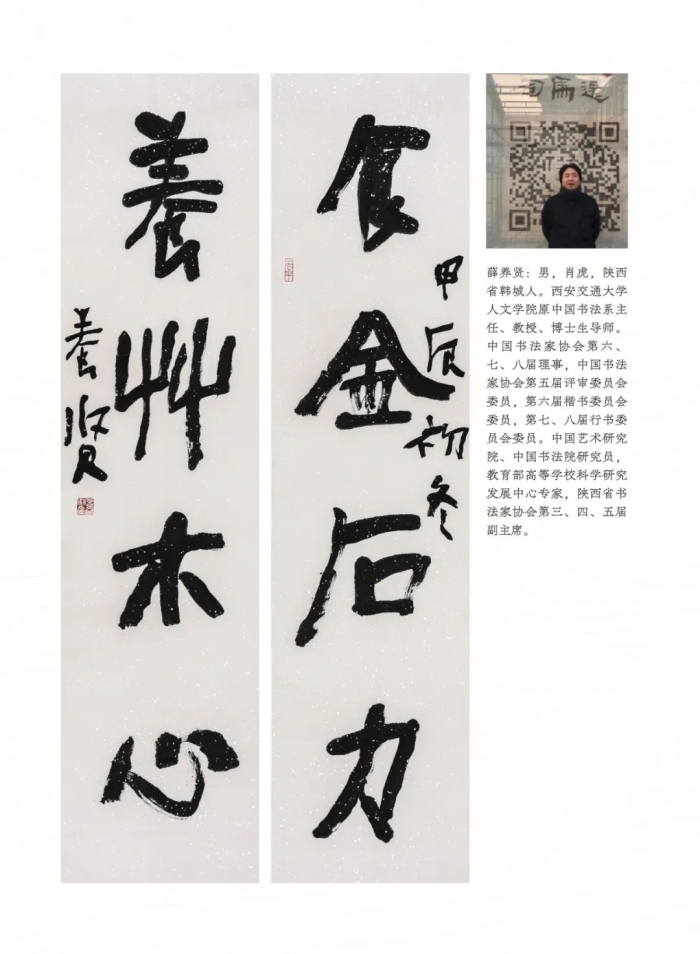 食金石力
甲辰初冬
養艸木心
養贤
薛养贤：男，肖虎，陕西
省韩城人。西安交通大学
人文学院原中国书法系主
任、教授、博士生导师。
中国书法家协会第六、
七、八届理事，中国书法
家协会第五届评审委员会
委员，第六届楷书委员会
委员，第七、八届行书委
员会委员。中国艺术研究
院、中国书法院研究员，
教育部高等学校科学研究
发展中心专家，陕西省书
法家协会第三、四、五届
副主席。